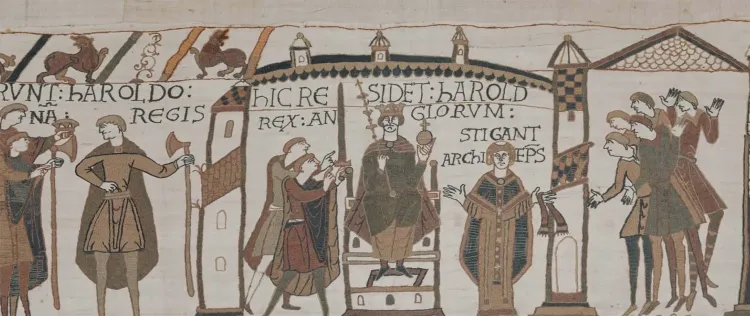 RVNT : hAROLDO :
NĀ : REGIS
hIC RE SIDET : hAROLD
REX : AN GLORVM :
STIGANT
ARchI EP̄S